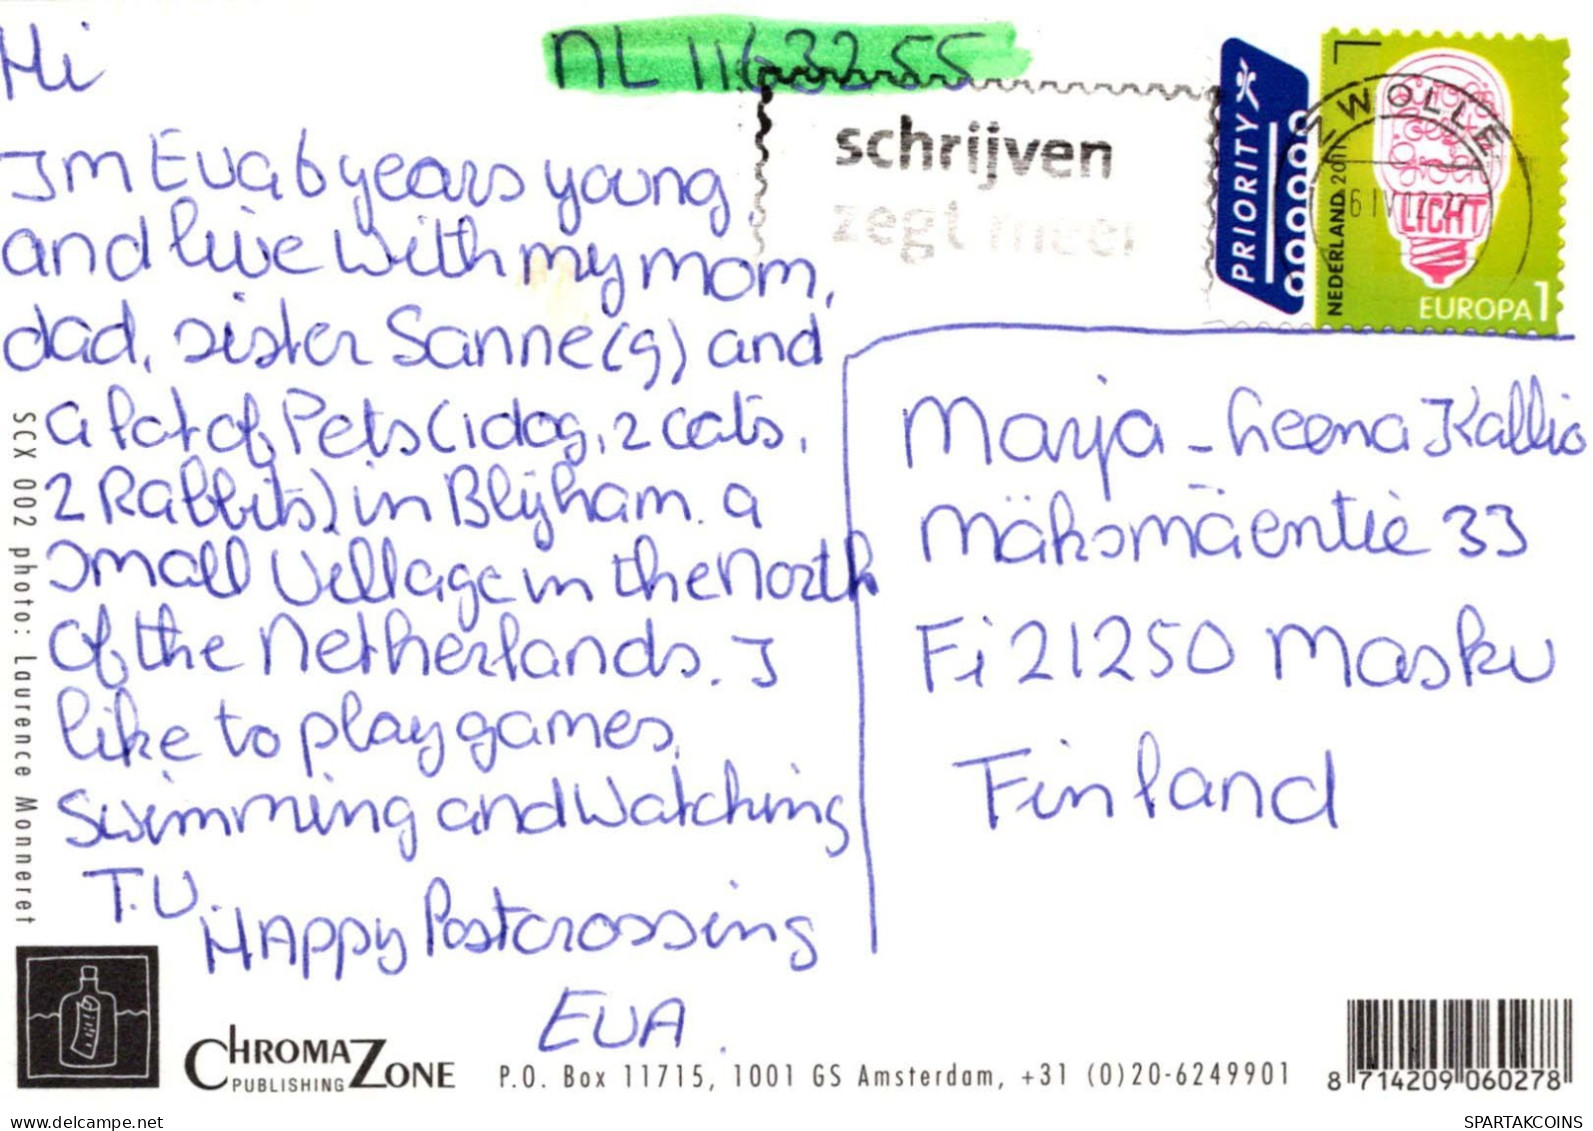 Hi
NL 1163255
Im Eva 6 years young,
and live with my mom,
dad, sister Sanne(9) and
a lot of Pets (1 dog, 2 cats,
2 Rabbits) in Blijham. a
small village in the North
of the Netherlands. I
like to play games,
swimming and Watching
T.V.
Happy Postcrossing
EVA.
schrijven
zegt meer
PRIORITY
NEDERLAND 2011
ZWOLLE
LICHT
EUROPA 1
Marja-Leena Kallio
Mäksmäentie 33
Fi 21250 Masku
Finland
SCX 002 photo: Laurence Monneret
CHROMAZONE
PUBLISHING
P.O. Box 11715, 1001 GS Amsterdam, +31 (0)20-6249901
8 714209 060278
www.delcampe.net
SPARTAKCOINS